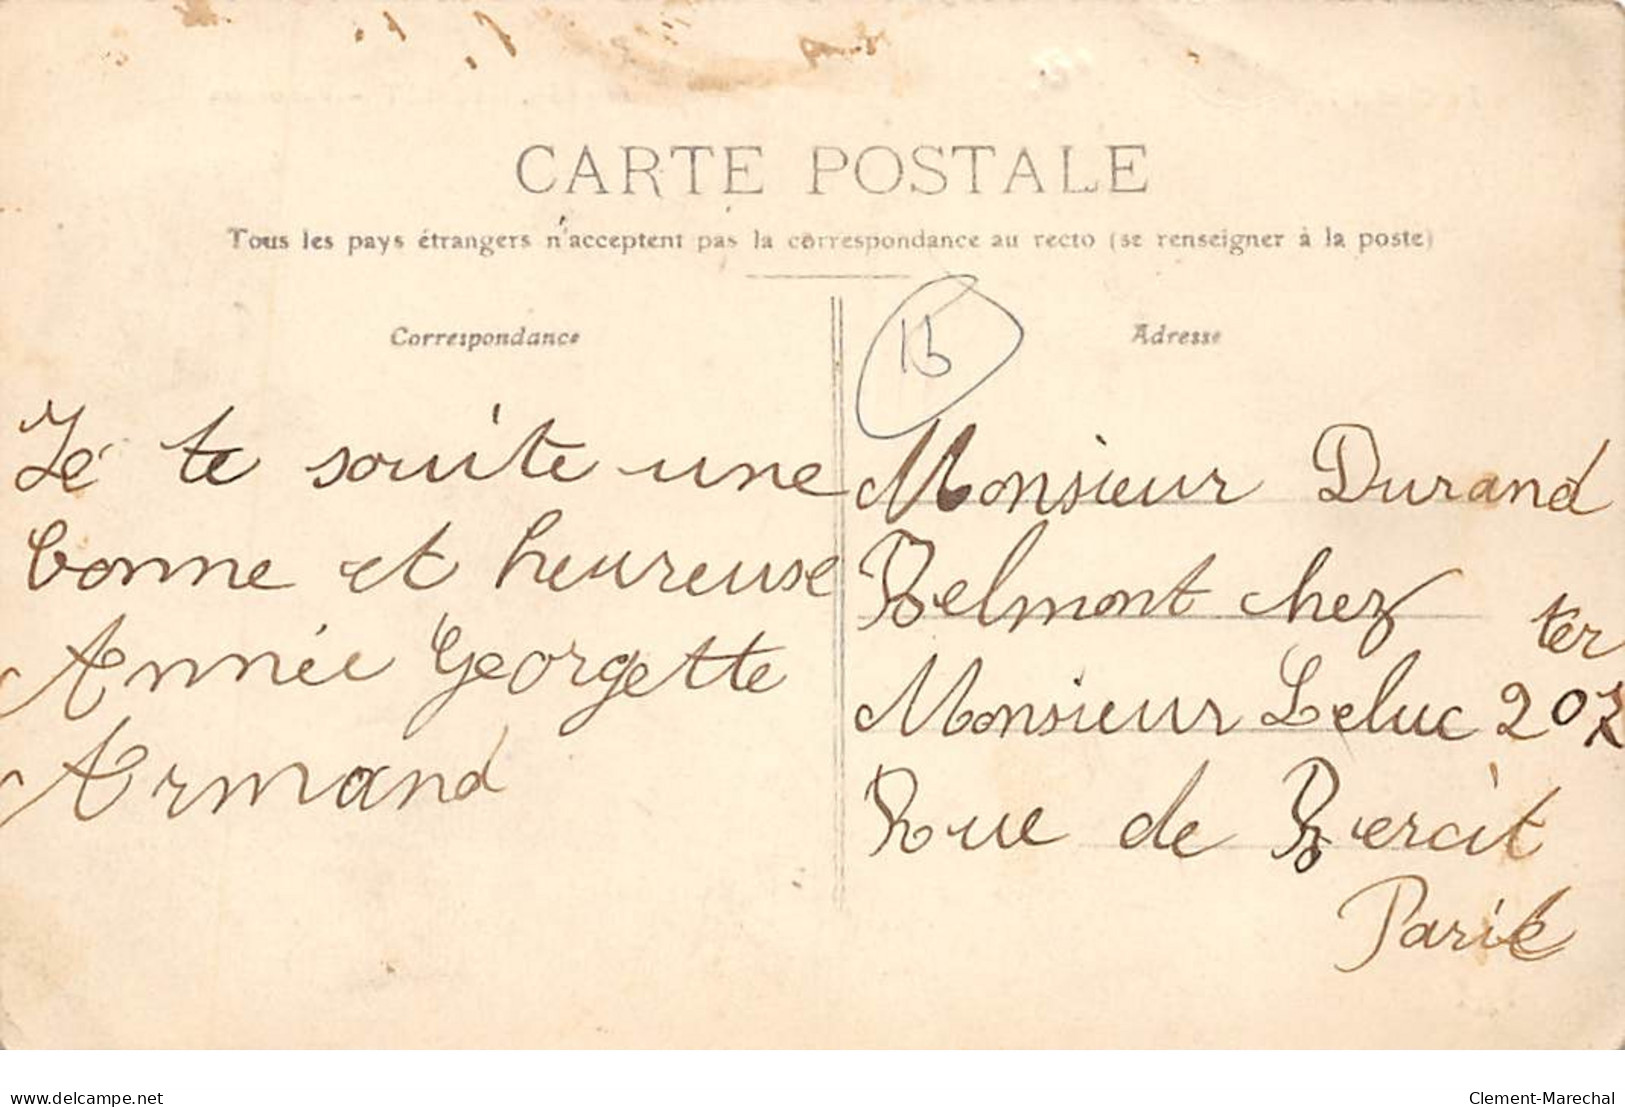 CARTE POSTALE
Tous les pays étrangers n'acceptent pas la correspondance au recto (se renseigner à la poste)
Correspondance
Je te souite une
bonne et heureuse
Année Georgette
Armand
Adresse
Monsieur Durand
Belmont chez
ter
Monsieur Leluc 207
Rue de Bercit
Paris
www.delcampe.net
Clement-Marechal